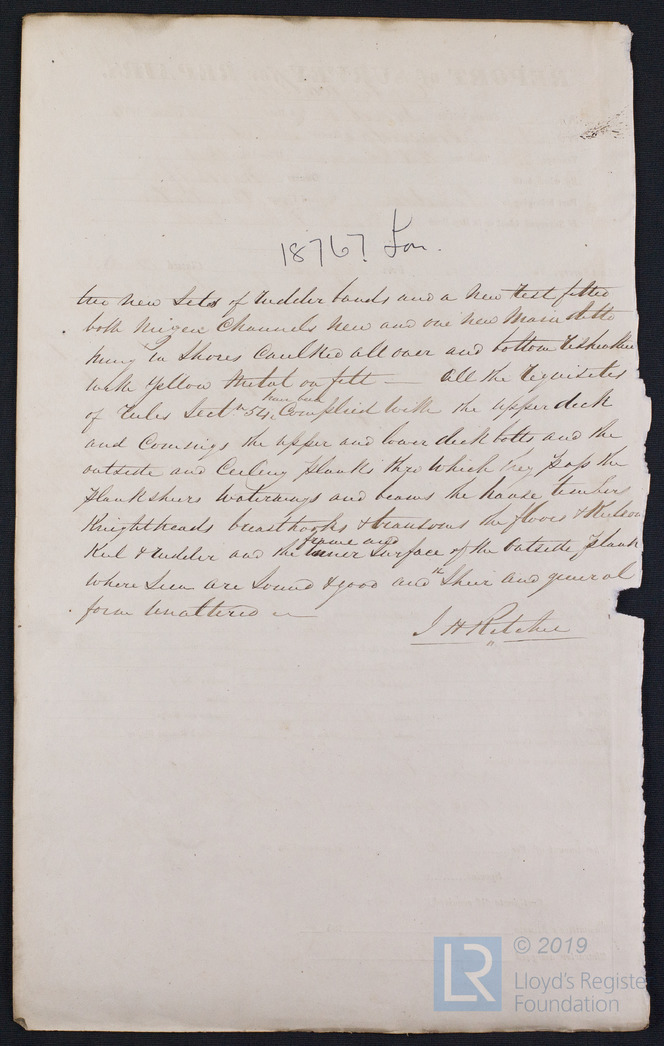 18767 Lon.
two new Sets of rudder bands and a new Rest fitted
both Mizen Channels new and one new Main ditto
hung in Shores Caulked all over and bottom resheathed
with Yellow Metal on felt — All the requisites
of Rules Sectn 54, have been Complied with the upper deck
and Comings the upper and lower deck bolts and the
outside and Ceiling planks thro which they pass the
plankshiers waterways and beams the hause timbers
Knightheads breasthooks & transoms the floors & Keelson
Keel & rudder and the frame and inner Surface of the outside plank
where Seen are Sound & good and the Sheer and general
form unaltered
J H Ritchie
LR © 2019
Lloyd's Registe
Foundation